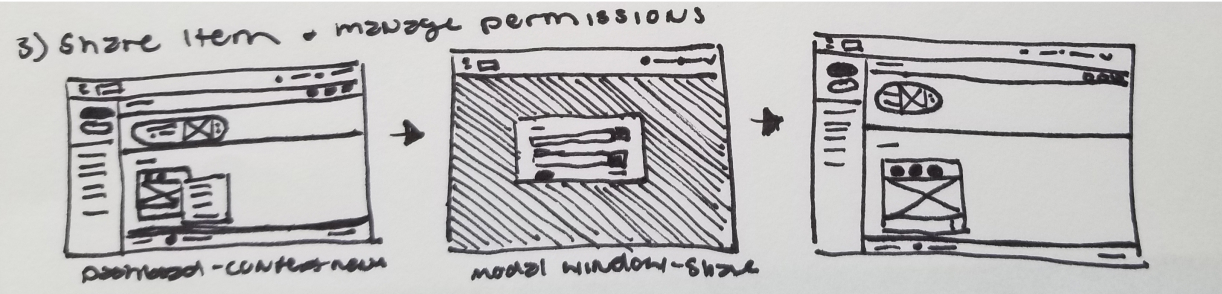 3) Share Item + manage permissions
Dashboard - context menu
modal window - share